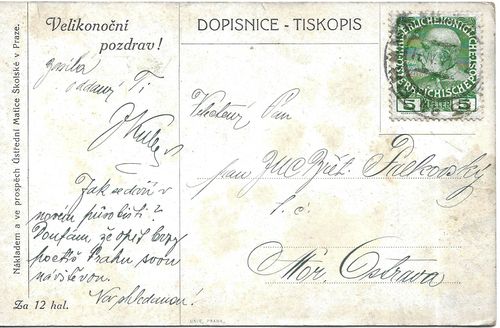 Velikonoční
pozdrav!
DOPISNICE - TISKOPIS
zasílá
oddaný Ti
Jak se daří v
novém působišti?
Doufám, že opět brzy
poctíš Prahu svou
návštěvou.
Na shledanou!
Veletěný Pan
pan JUC Břet. Palkovský
t. č.
Mor. Ostrava
5 HELLER 5
Nákladem a ve prospěch Ústřední Matice Školské v Praze.
Za 12 hal.
UNIE, PRAHA.